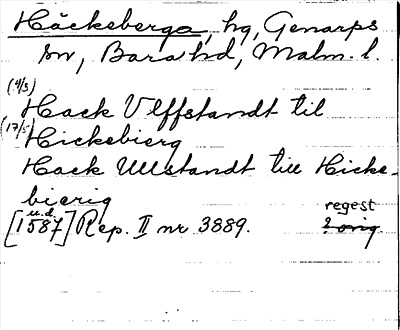 Häckeberga, hg, Genarps
sn, Bara hd, Malm. l.
(4/3) Hack Vlffstandt til
(17/5) Hickebierg
Hack Ullstandt till Hicke-
bierig
u.d.
[1587] Rep. II nr 3889.
regest
? orig